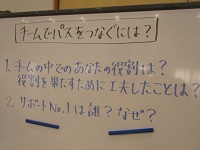 チームでパスをつなぐには？
1. チームの中でのあなたの役割は？
役割を果たすために工夫したことは？
2. サポートNo.1は誰？なぜ？